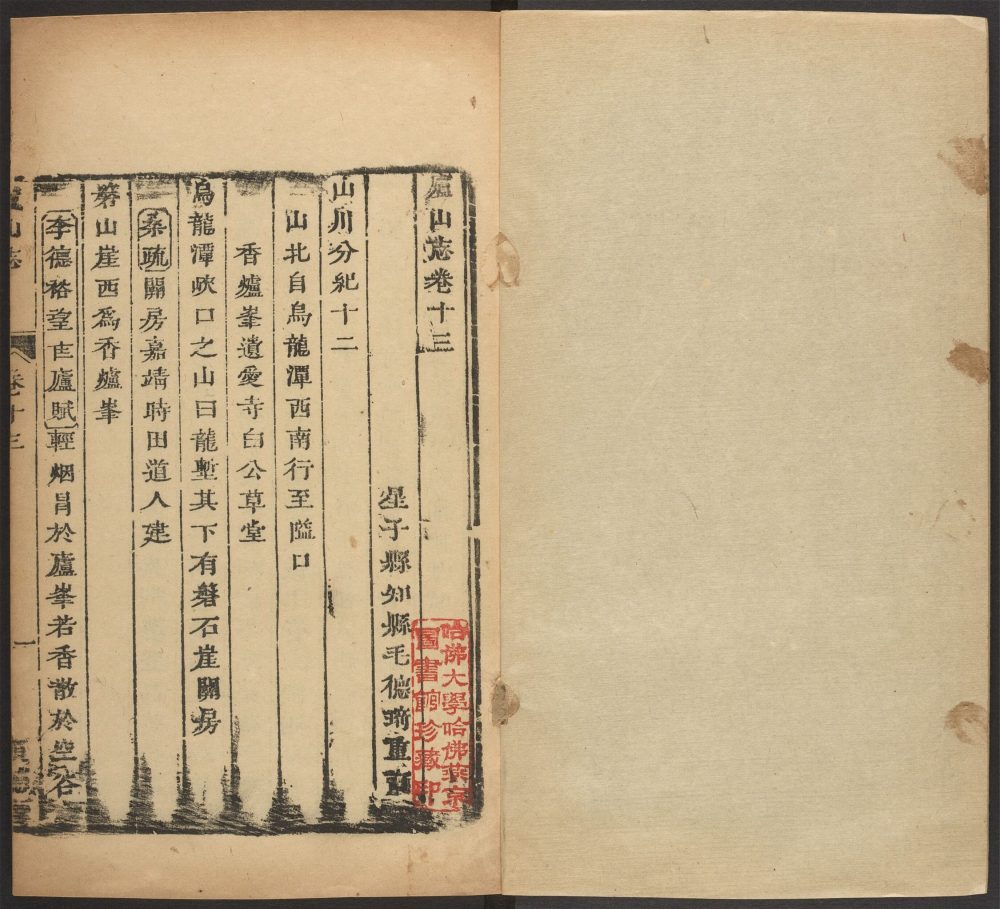 廬山志卷十三
星子縣知縣毛德琦重訂
山川分紀十二
山北自烏龍潭西南行至隘口
香爐峯遺愛寺白公草堂
烏龍潭吹口之山曰龍塹其下有磐石崖關房
桑疏關房嘉靖時田道人建
磐山崖西爲香爐峯
李德裕望匡廬賦輕烟冐於廬峯若香散於空谷
廬山志
卷十三
一
哈佛大學哈佛燕京
圖書館珍藏印